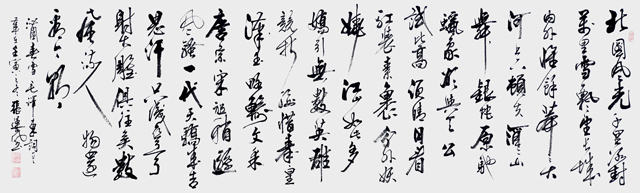 北國風光千里冰封
萬里雪飄望長城
內外惟餘莽莽大
河上下頓失滔滔山
舞銀蛇原馳
蠟象欲與天公
試比高須晴日看
紅裝素裹分外妖
嬈江山如此多
嬌引無數英雄
競折腰惜秦皇
漢武略輸文采
唐宗宋祖稍遜
風騷一代天驕成吉
思汗只識彎弓
射大雕俱往矣數
風流人物還
看今朝
沁園春雪毛澤東詞